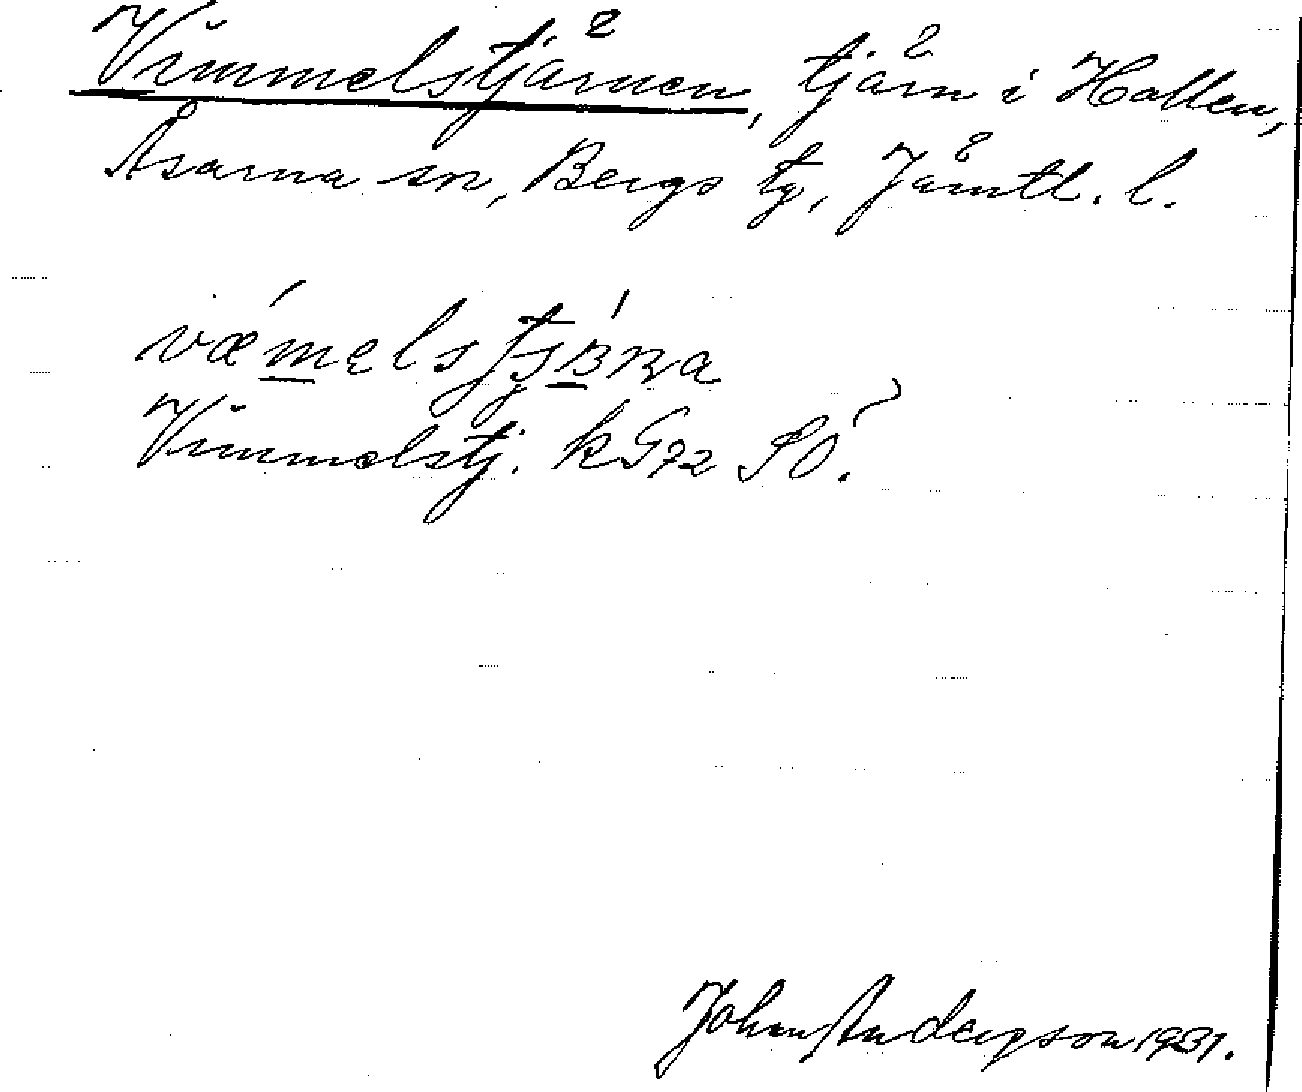 Vimmelstjärnen, tjärn i Hallen,
Åsarna sn, Bergs tg, Jämtl. l.
Vimmelstj. kG72 SO.
John Anderson 1931.